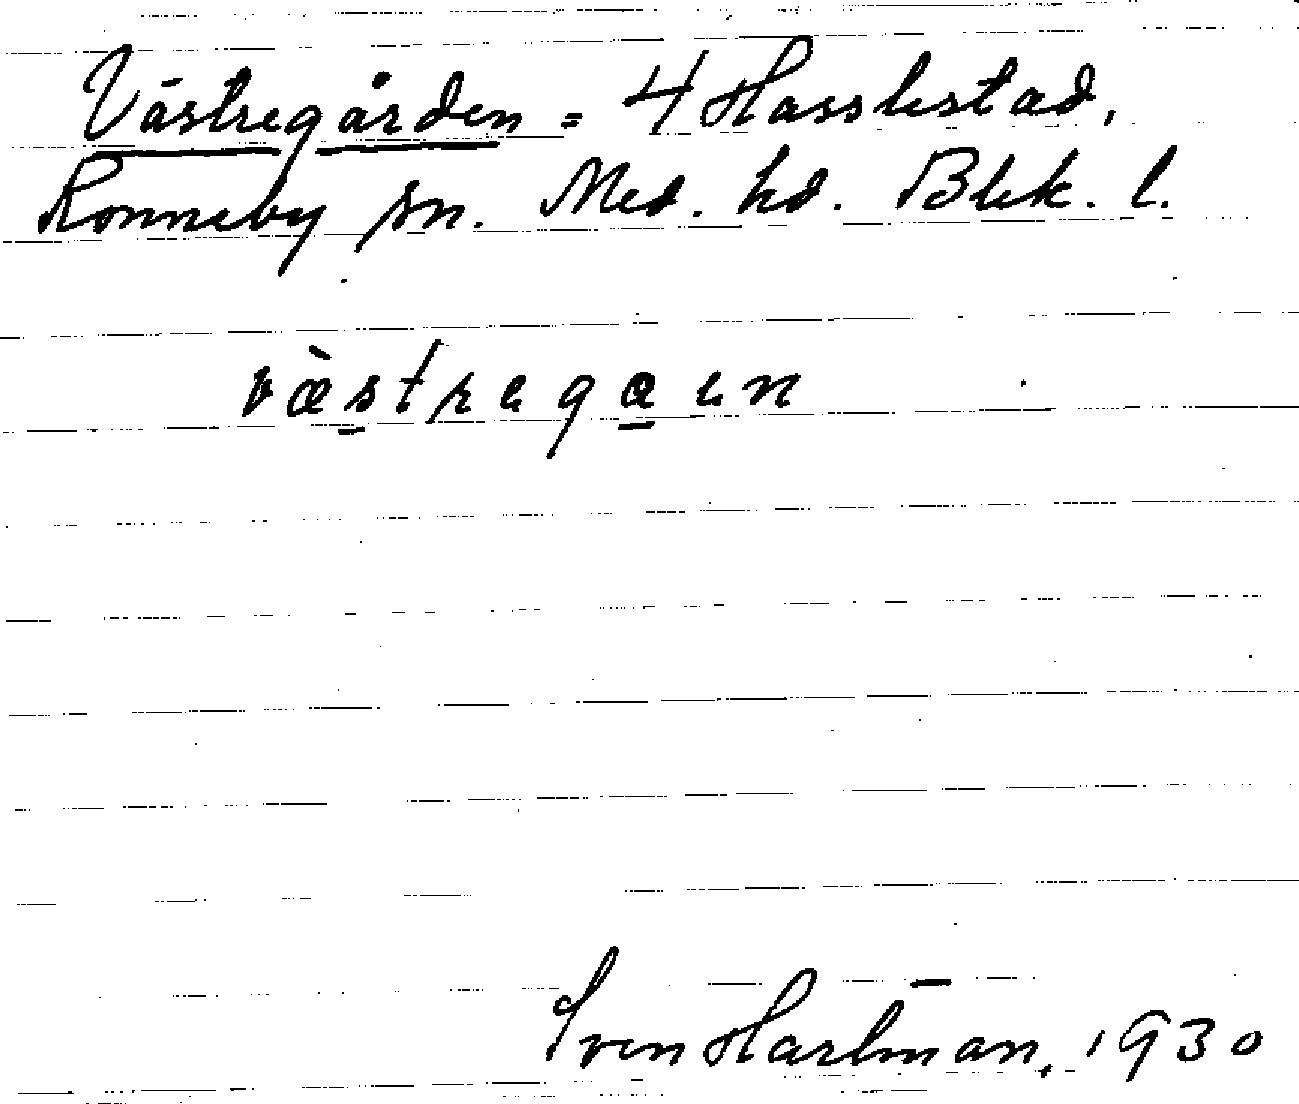 Västregården = 4 Hasslestad,
Ronneby sn. Med. hd. Blek. l.
væ̀s̠tregɑ̠en
Sven Hartman, 1930